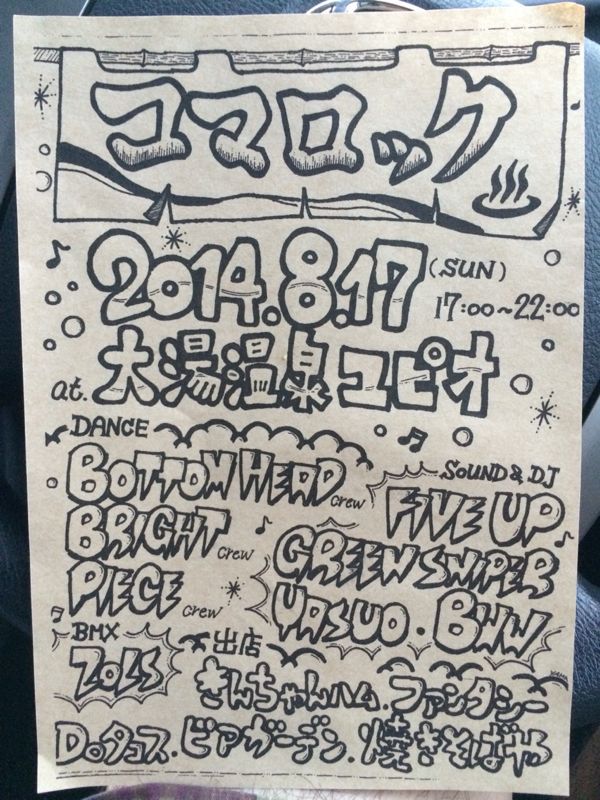 コマロック
2014.8.17 (SUN)
17:00~22:00
at. 大湯温泉 ユピオ
DANCE
BOTTOM HEAD crew
BRIGHT crew
PIECE crew
SOUND & DJ
FIVE UP
GREEN SNIPER
YASUO . BWW
BMX
ZOLS
出店
きんちゃんハム . ファンタジー
Doタコス . ビアガーデン . 焼きそばや